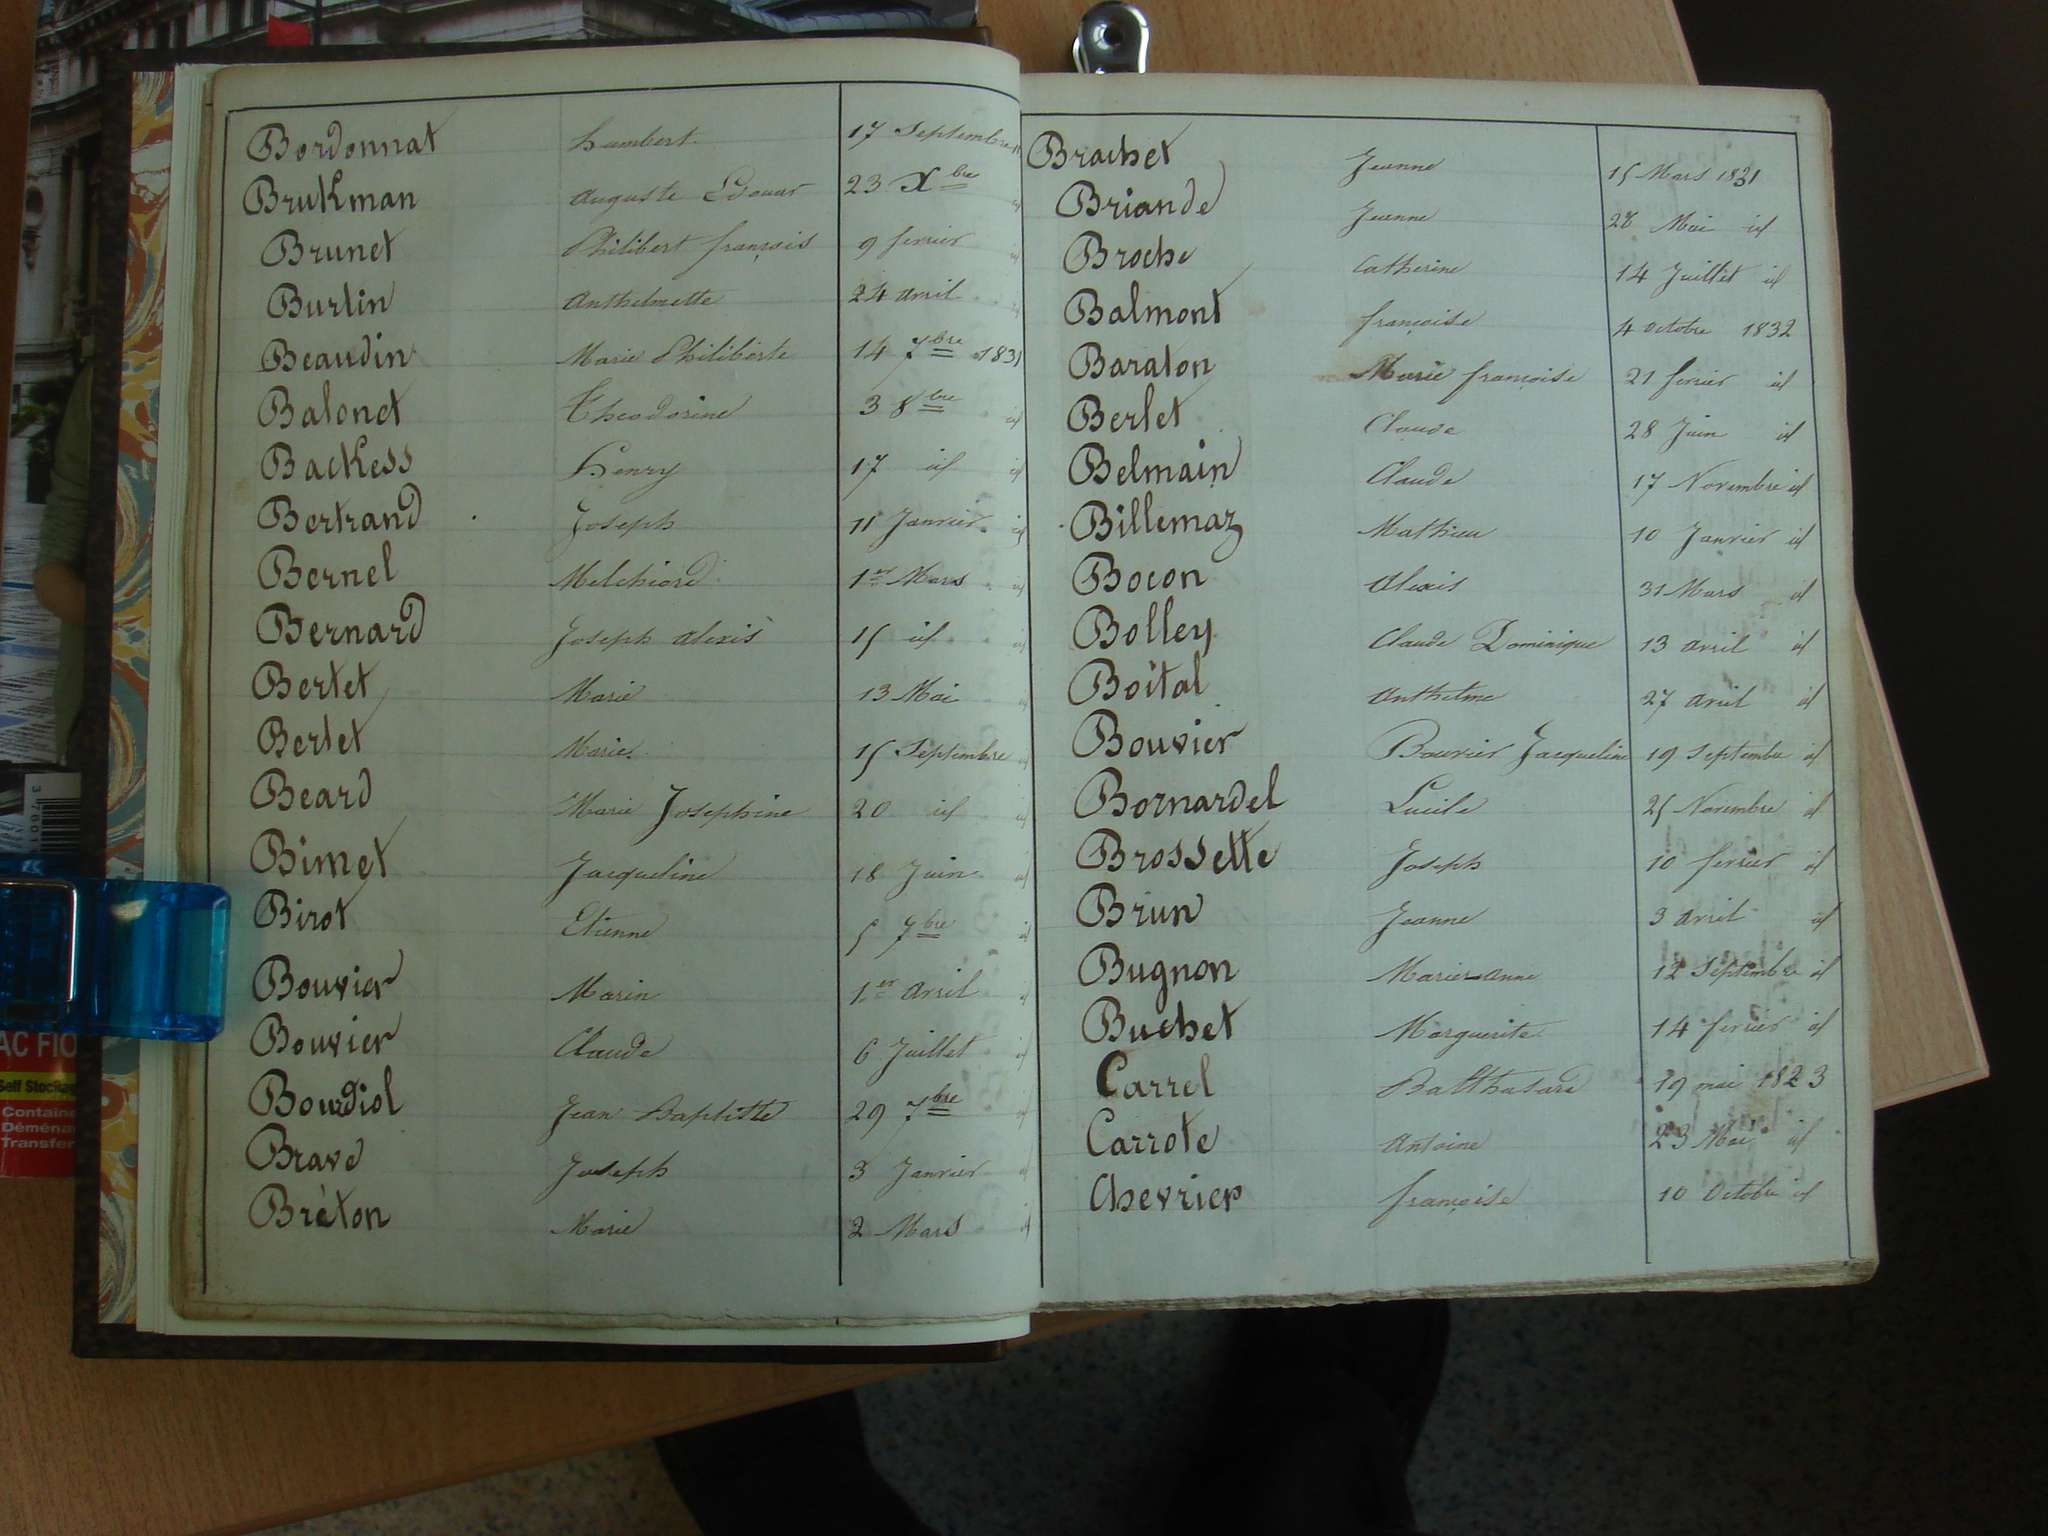 Bordonnat Humbert 17 Septembre id
Brukman Auguste Edouar 23 Xbre id
Brunet Philibert françois 9 fevrier id
Burtin Anthelmette 24 avril id
Beaudin Marie Philiberte 14 7bre 1831
Balonet Theodorine 3 8bre id
Backess Henry 17 id id
Bertrand Joseph 11 Janvier id
Bernel Melchiord 1er Mars id
Bernard Joseph alexis 15 id id
Bertet Marie 13 Mai id
Bertet Marie 15 Septembre id
Beard Marie Josephine 20 id id
Bimet Jacqueline 18 Juin id
Birot Etienne 5 7bre id
Bouvier Marin 1er avril id
Bouvier Claude 6 Juillet id
Bourdiol Jean Baptiste 29 7bre id
Brave Joseph 3 Janvier id
Bréton Marie 2 Mars id
Brachet Jeanne 15 Mars 1831
Briande Jeanne 28 Mai id
Broche Catherine 14 Juillet id
Balmont françoise 4 octobre 1832
Baraton Marie françoise 21 fevrier id
Berlet Claude 28 Juin id
Belmain Claude 17 Novembre id
Billemaz Mathieu 10 Janvier id
Bocon Alexis 31 Mars id
Bolley Claude Dominique 13 avril id
Boital Anthelme 27 avril id
Bouvier Bouvier Jacqueline 19 Septembre id
Bornardel Lucile 25 Novembre id
Brossette Joseph 10 fevrier id
Brun Jeanne 3 avril id
Bugnon Marie-anne 12 Septembre id
Buchet Marguerite 14 fevrier id
Carrel Balthasard 19 mai 1823
Carrote Antoine 23 Mai id
Chevrier françoise 10 Octobre id
AC FIO
Self Stocka
Containe
Déména
Transfer